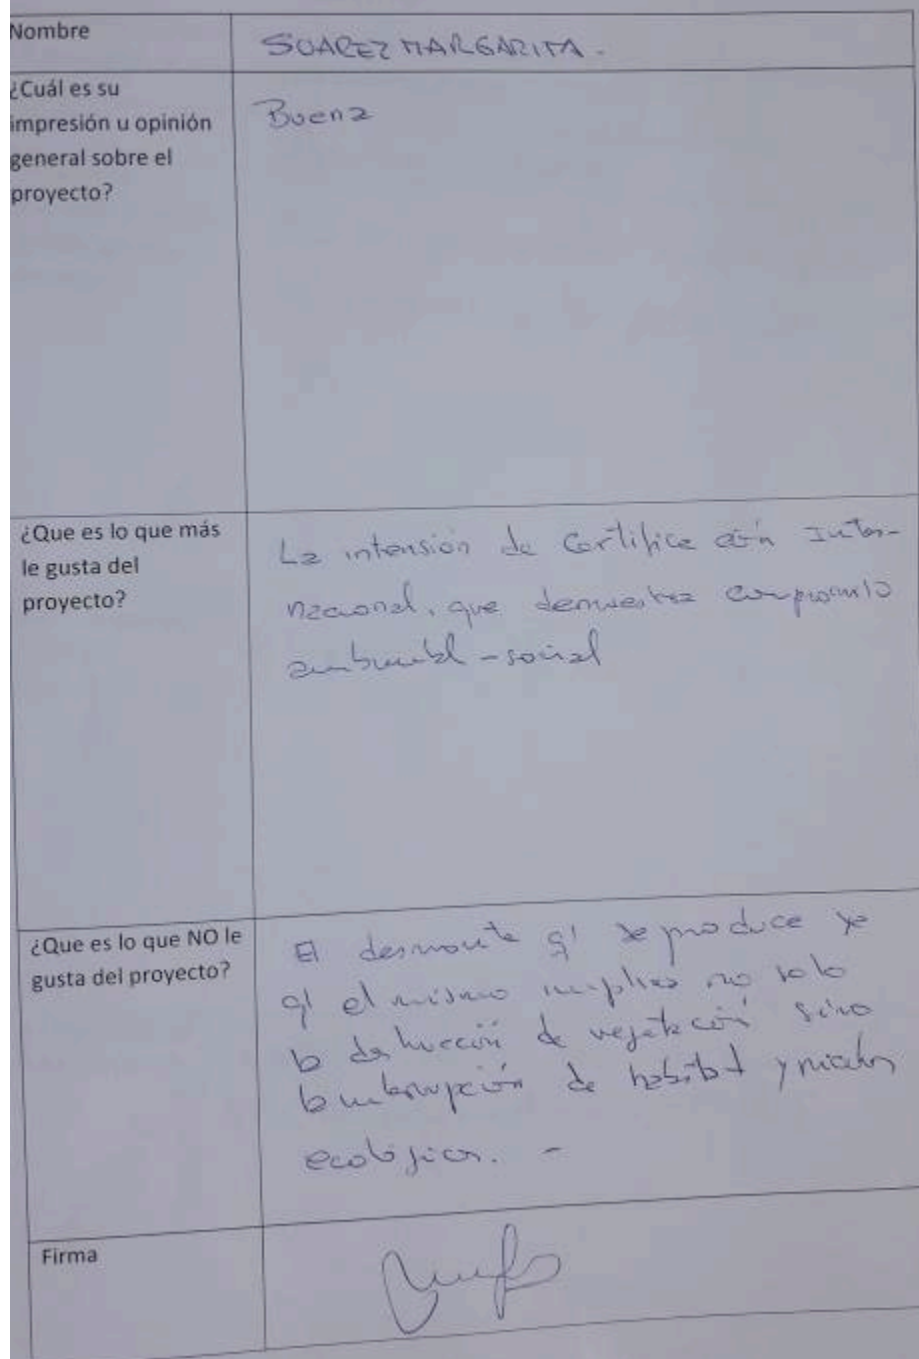 Nombre
SUAREZ MARGARITA.
¿Cuál es su
impresión u opinión
general sobre el
proyecto?
Buena
¿Que es lo que más
le gusta del
proyecto?
La intensión de Certificación Inter-
nacional, que demuestra compromiso
ambiental - social
¿Que es lo que NO le
gusta del proyecto?
El desmonte q' se produce ya
q' el mismo implica no solo
la destrucción de vegetación sino
la interrupción de habitat y nichos
ecológicos. -
Firma